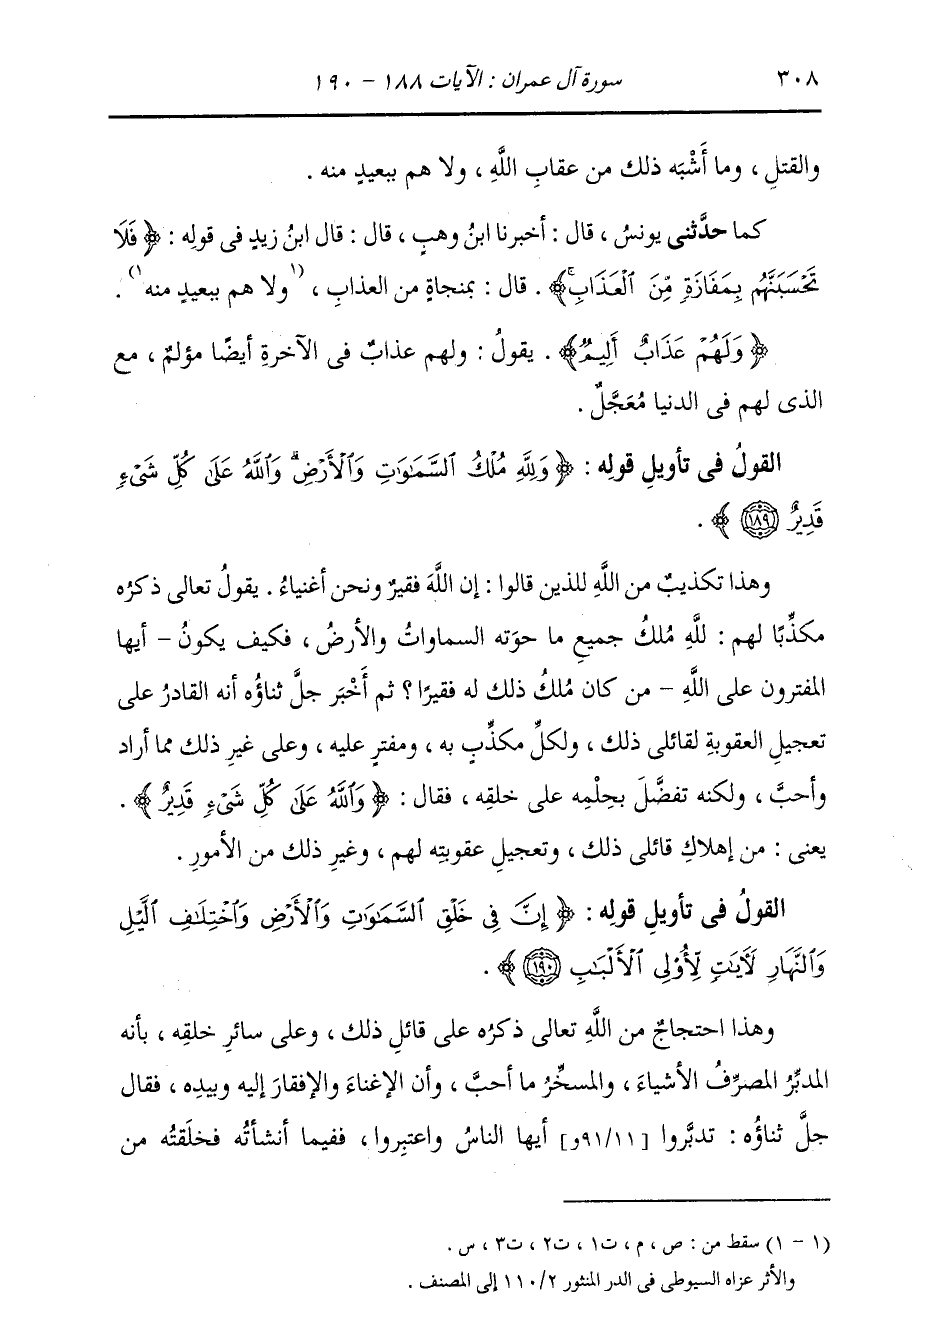 ٣٠٨ سورة آل عمران : الآيات ١٨٨ - ١٩٠
والقتلِ ، وما أَشْبَه ذلك من عقابِ اللَّهِ ، ولا هم ببعيدٍ منه .
كما حدَّثنى يونسُ ، قال : أخبرنا ابنُ وهبٍ ، قال : قال ابنُ زيدٍ فى قولِه : ﴿ فَلَا
تَحْسَبَنَّهُم بِمَفَازَةٍ مِّنَ ٱلْعَذَابِۚ ﴾ . قال : بمنجاةٍ من العذابِ ، (١ولا هم ببعيدٍ منه١) .
﴿ وَلَهُمْ عَذَابٌ أَلِيمٌ ﴾ . يقولُ : ولهم عذابٌ فى الآخرةِ أيضًا مؤلمٌ ، مع
الذى لهم فى الدنيا مُعَجَّلٌ .
القولُ فى تأويلِ قولِه : ﴿ وَلِلَّهِ مُلْكُ ٱلسَّمَٰوَٰتِ وَٱلْأَرْضِۗ وَٱللَّهُ عَلَىٰ كُلِّ شَىْءٍ
قَدِيرٌ ١٨٩ ﴾ .
وهذا تكذيبٌ من اللَّهِ للذين قالوا : إن اللَّهَ فقيرٌ ونحن أغنياءُ . يقولُ تعالى ذكرُه
مكذِّبًا لهم : للَّهِ مُلكُ جميعِ ما حوَته السماواتُ والأرضُ ، فكيف يكونُ - أيها
المفترون على اللَّهِ - من كان مُلكُ ذلك له فقيرًا ؟ ثم أَخْبَر جلَّ ثناؤُه أنه القادرُ على
تعجيلِ العقوبةِ لقائلى ذلك ، ولكلِّ مكذِّبٍ به ، ومفترٍ عليه ، وعلى غيرِ ذلك مما أراد
وأحبَّ ، ولكنه تفضَّلَ بحِلْمِه على خلقِه ، فقال : ﴿ وَٱللَّهُ عَلَىٰ كُلِّ شَىْءٍ قَدِيرٌ ﴾ .
يعنى : من إهلاكِ قائلى ذلك ، وتعجيلِ عقوبتِه لهم ، وغيرِ ذلك من الأمورِ .
القولُ فى تأويلِ قولِه : ﴿ إِنَّ فِى خَلْقِ ٱلسَّمَٰوَٰتِ وَٱلْأَرْضِ وَٱخْتِلَٰفِ ٱلَّيْلِ
وَٱلنَّهَارِ لَآيَٰتٍ لِّأُوْلِى ٱلْأَلْبَٰبِ ١٩٠ ﴾ .
وهذا احتجاجٌ من اللَّهِ تعالى ذكرُه على قائلِ ذلك ، وعلى سائرِ خلقِه ، بأنه
المدبِّرُ المصرِّفُ الأشياءَ ، والمسخِّرُ ما أحبَّ ، وأن الإغناءَ والإفقارَ إليه وبيدِه ، فقال
جلَّ ثناؤُه : تدبَّروا [٩١/١١و] أيها الناسُ واعتبِروا ، ففيما أنشأتُه فخلَقتُه من
(١ - ١) سقط من : ص ، م ، ت١ ، ت٢ ، ت٣ ، س .
والأثر عزاه السيوطى فى الدر المنثور ١١٠/٢ إلى المصنف .